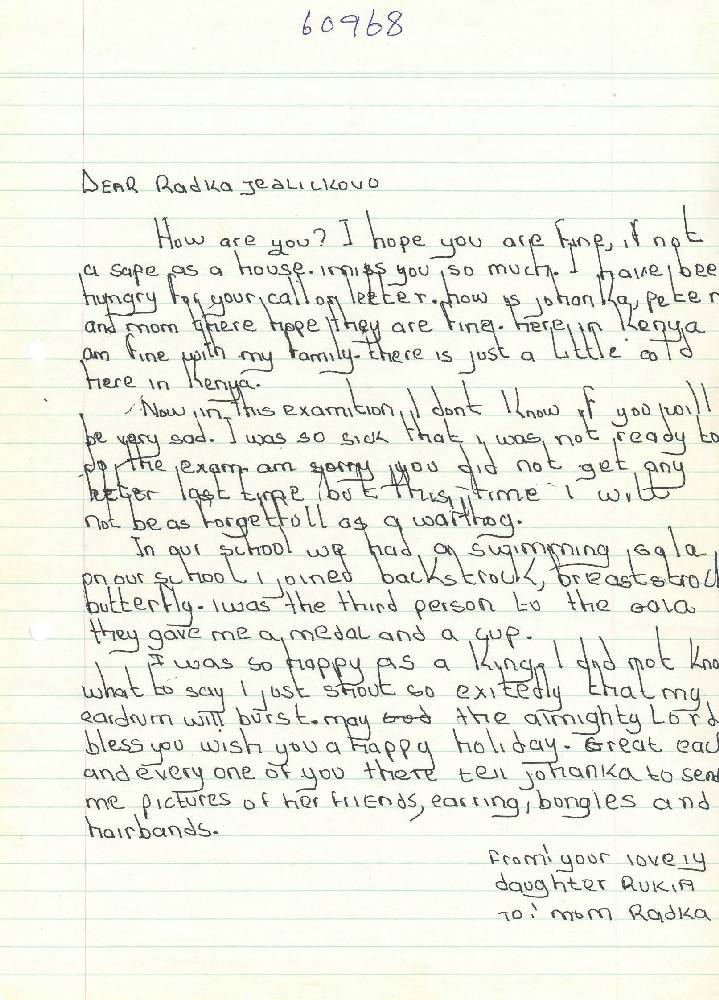 60968
DEAR Radka Jedlickovo
How are you? I hope you are fine, if not
a safe as a house. i miss you so much. I have bee
hungry for your call or letter. how is johanka, peter
and mom there hope they are fine. here in Kenya
am fine with my family. there is just a little cold
here in Kenya.
Now in this examition, I dont know if you will
be very sad. I was so sick that i was not ready to
do the exam. am sorry you did not get any
letter last time but this time i will
not be as forgetfull as a warthog.
In our school we had a swimming gala
on our school i joined backstrock, breaststrock
butterfly. i was the third person to the Gala
they gave me a medal and a cup.
I was so happy as a King. I did not kno
what to say i just shout so exitedly that my
eardrum will burst. may God the almighty Lord
bless you wish you a happy holiday. Great eac
and every one of you there tell johanka to send
me pictures of her friends, earring, bongles and
hairbands.
From: your lovely
daughter RUKIA
To: mom Radka